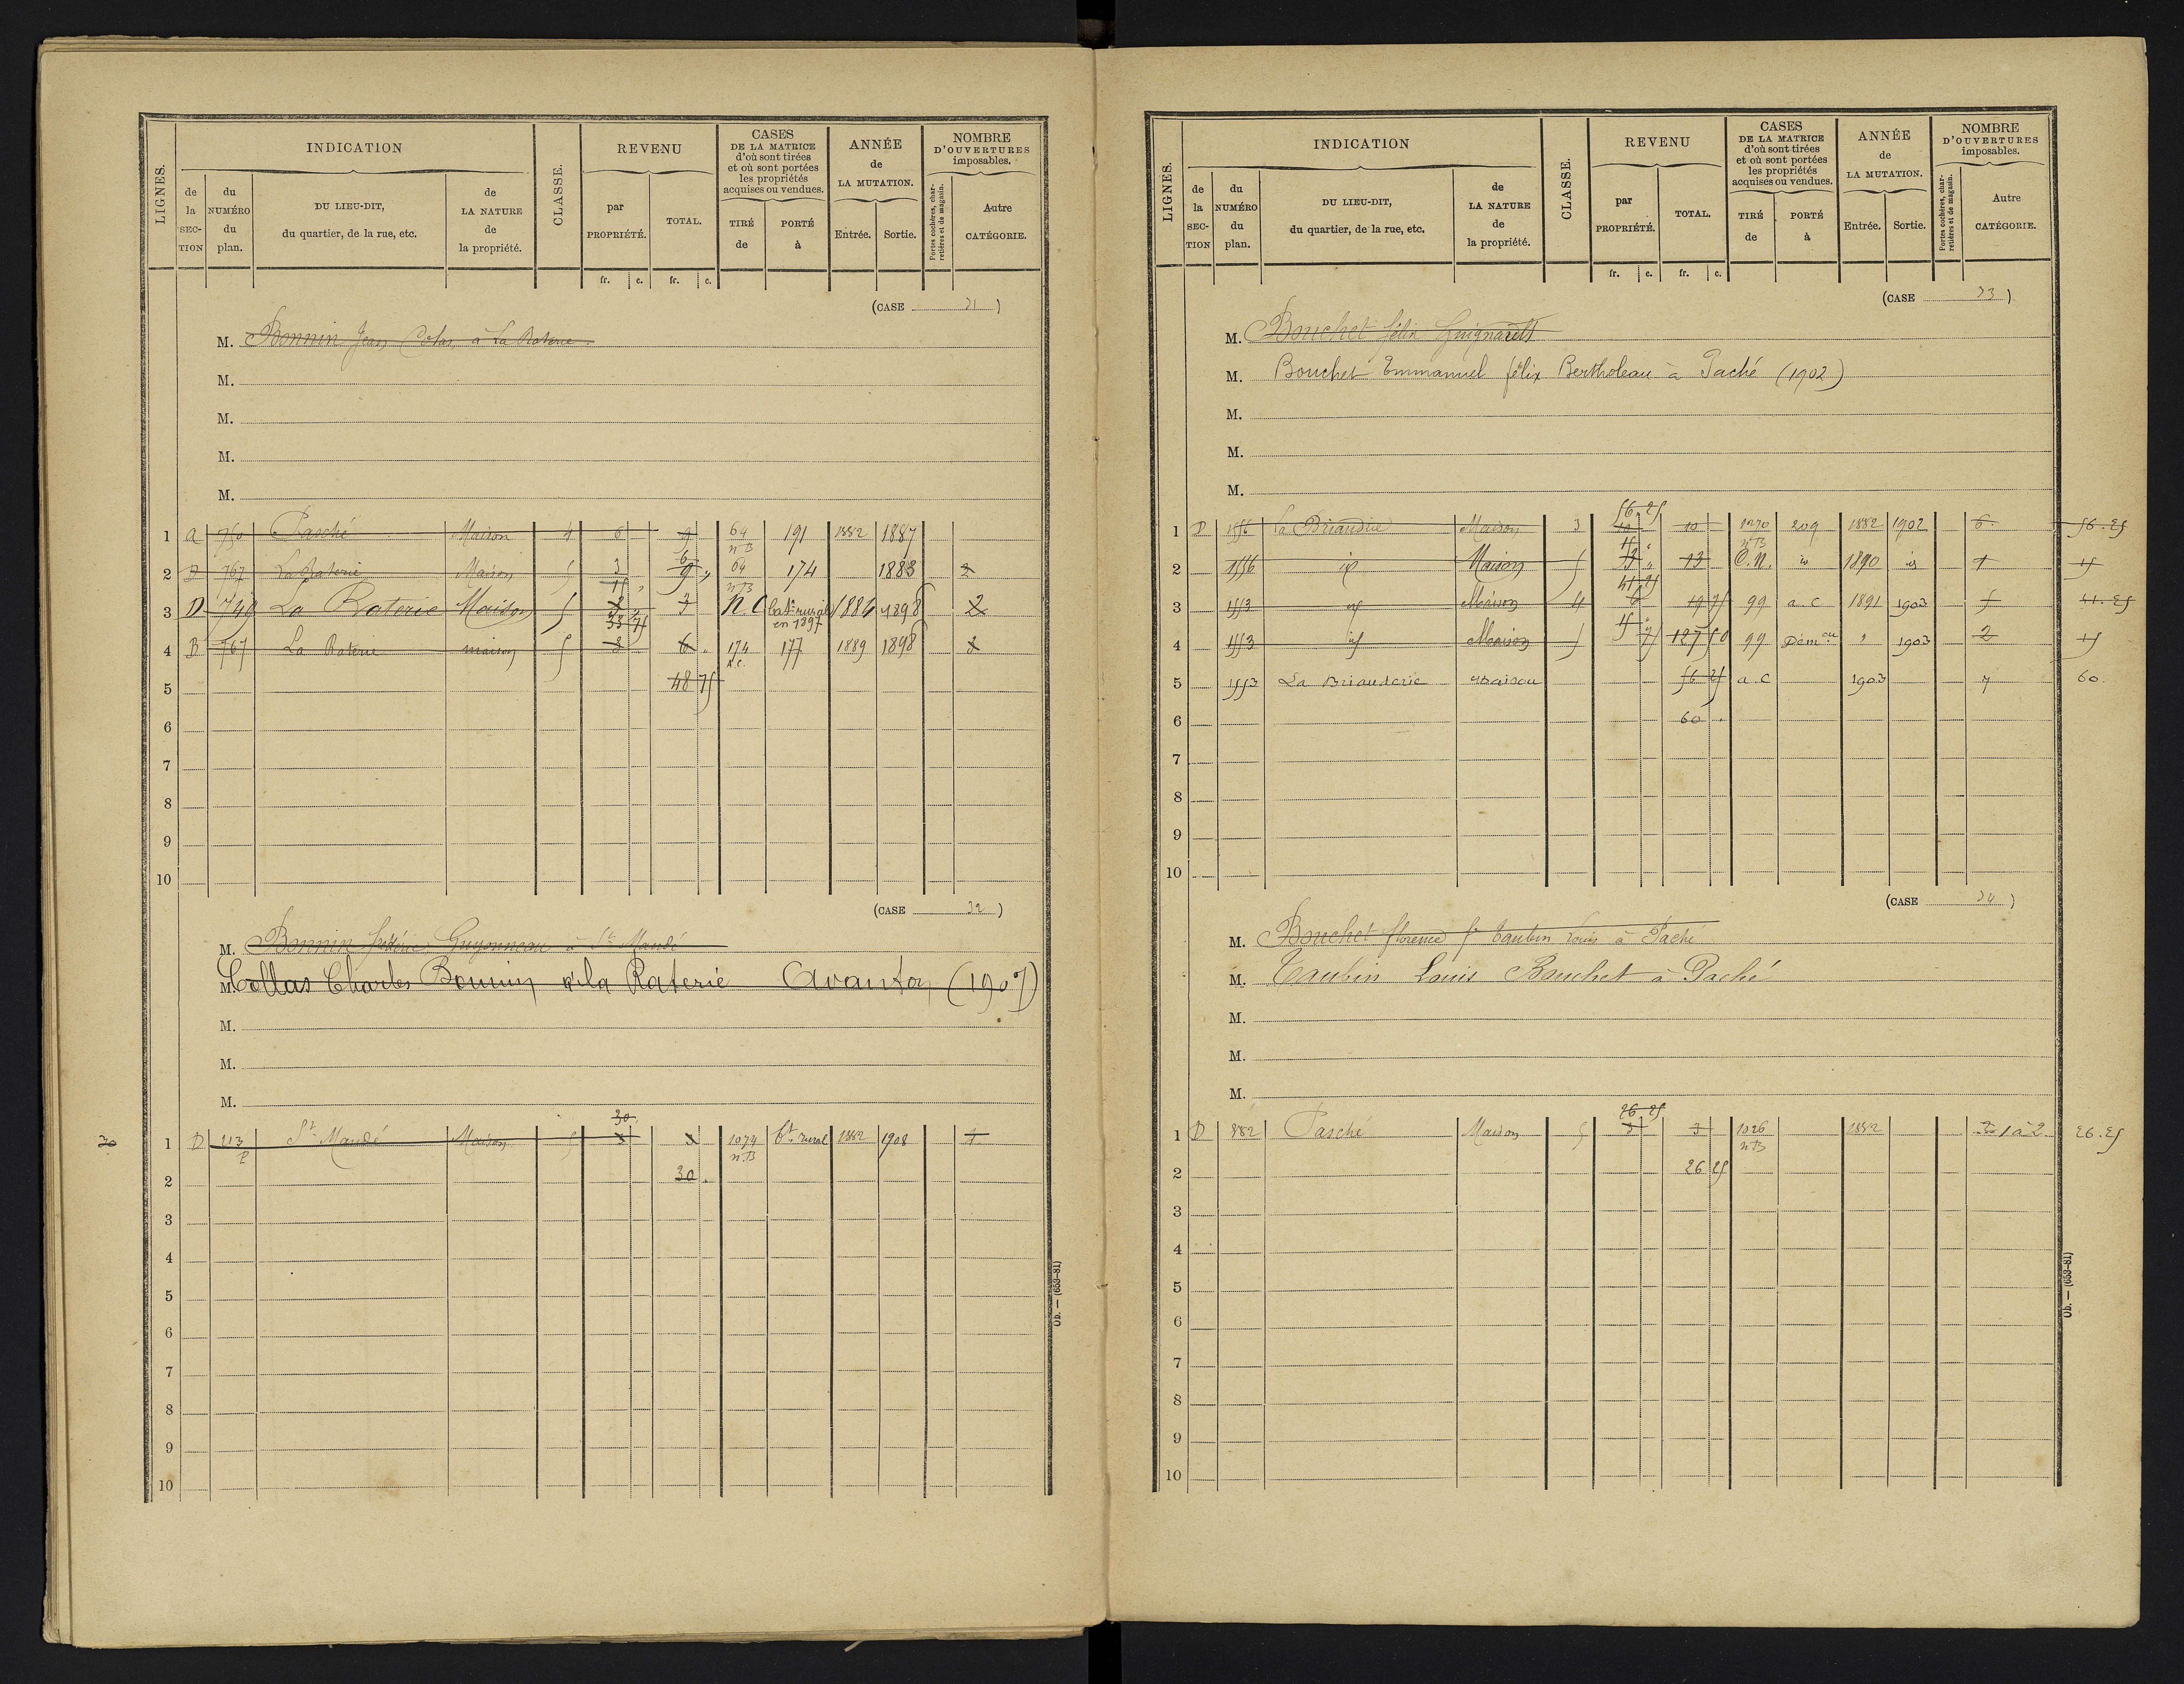 LIGNES.
INDICATION
de la SECTION
du NUMÉRO du plan.
DU LIEU-DIT, du quartier, de la rue, etc.
de LA NATURE de la propriété.
CLASSE.
REVENU
par PROPRIÉTÉ.
TOTAL.
CASES DE LA MATRICE d'où sont tirées et où sont portées les propriétés acquises ou vendues.
TIRÉ de
PORTÉ à
ANNÉE de LA MUTATION.
Entrée.
Sortie.
NOMBRE D'OUVERTURES imposables.
Portes cochères, charretières et de magasin.
Autre CATÉGORIE.
fr. c. fr. c.
(CASE 31)
M. Bonnin Jean Colas à La Raterie
M.
M.
M.
M.
1 A 750 Pasché Maison 4 64 191 1882 1887
nB
2 D 767 La Raterie Maison 5 3 64 174 1883 2
nB
15
3 D 749 La Raterie Maison 5 3 N.C Bat. rural 1884 1898 2
en 1897
33 75
4 B 767 La Raterie maison 5 6 174 177 1889 1898
5 48 75
6
7
8
9
10
(CASE 32)
M. Bonnin frédéric Guyonneau à St Maudé
M. Collas Charles Bonnin à la Raterie Avanton (1907)
M.
M.
M.
30
30 1 D 213 St Maudé Maison 5 3 3 1074 Bt rural 1882 1908 1
P nB
2 30
3
4
5
6
7
8
9
10
Ob. — (653-81)
LIGNES.
INDICATION
de la SECTION
du NUMÉRO du plan.
DU LIEU-DIT, du quartier, de la rue, etc.
de LA NATURE de la propriété.
CLASSE.
REVENU
par PROPRIÉTÉ.
TOTAL.
CASES DE LA MATRICE d'où sont tirées et où sont portées les propriétés acquises ou vendues.
TIRÉ de
PORTÉ à
ANNÉE de LA MUTATION.
Entrée.
Sortie.
NOMBRE D'OUVERTURES imposables.
Portes cochères, charretières et de magasin.
Autre CATÉGORIE.
fr. c. fr. c.
(CASE 33)
M. Bouchet félix Guignarelt
M. Bouchet Emmanuel félix Bertholeau à Paché (1902)
M.
M.
M.
56.25
1 D 1556 La Briandrie Maison 3 10 10 1270 209 1882 1902 6 56.25
nB
15
2 1556 id Maison 5 13 13 C.N. id 1890 id 1 15
41 25
3 1553 id Maison 4 19 75 99 a.c 1891 1903 5 41.25
15
4 1553 id Maison 5 127 50 99 Dém on " 1903 2 15
5 1553 La Briauderie Maison 56 25 a.c 1903 7 60
6 60
7
8
9
10
(CASE 34)
M. Bouchet florence fe Taubin Louis à Paché
M. Taubin Louis Bouchet à Paché
M.
M.
M.
26.25
1 D 882 Pasché Maison 5 3 3 1026 1882 1 à 2 26.25
nB
2 26 25
3
4
5
6
7
8
9
10
Ob. — (653-81)